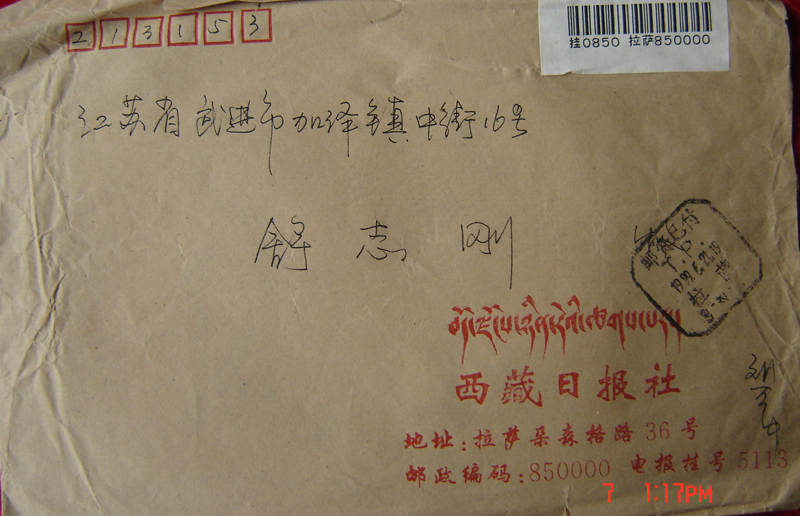 213153
挂0850 拉萨850000
江苏省武进市加泽镇中街16号
舒志刚
邮资已付
拉萨
西藏日报社
地址:拉萨朵森格路36号
邮政编码:850000 电报挂号5113
7 1:17PM